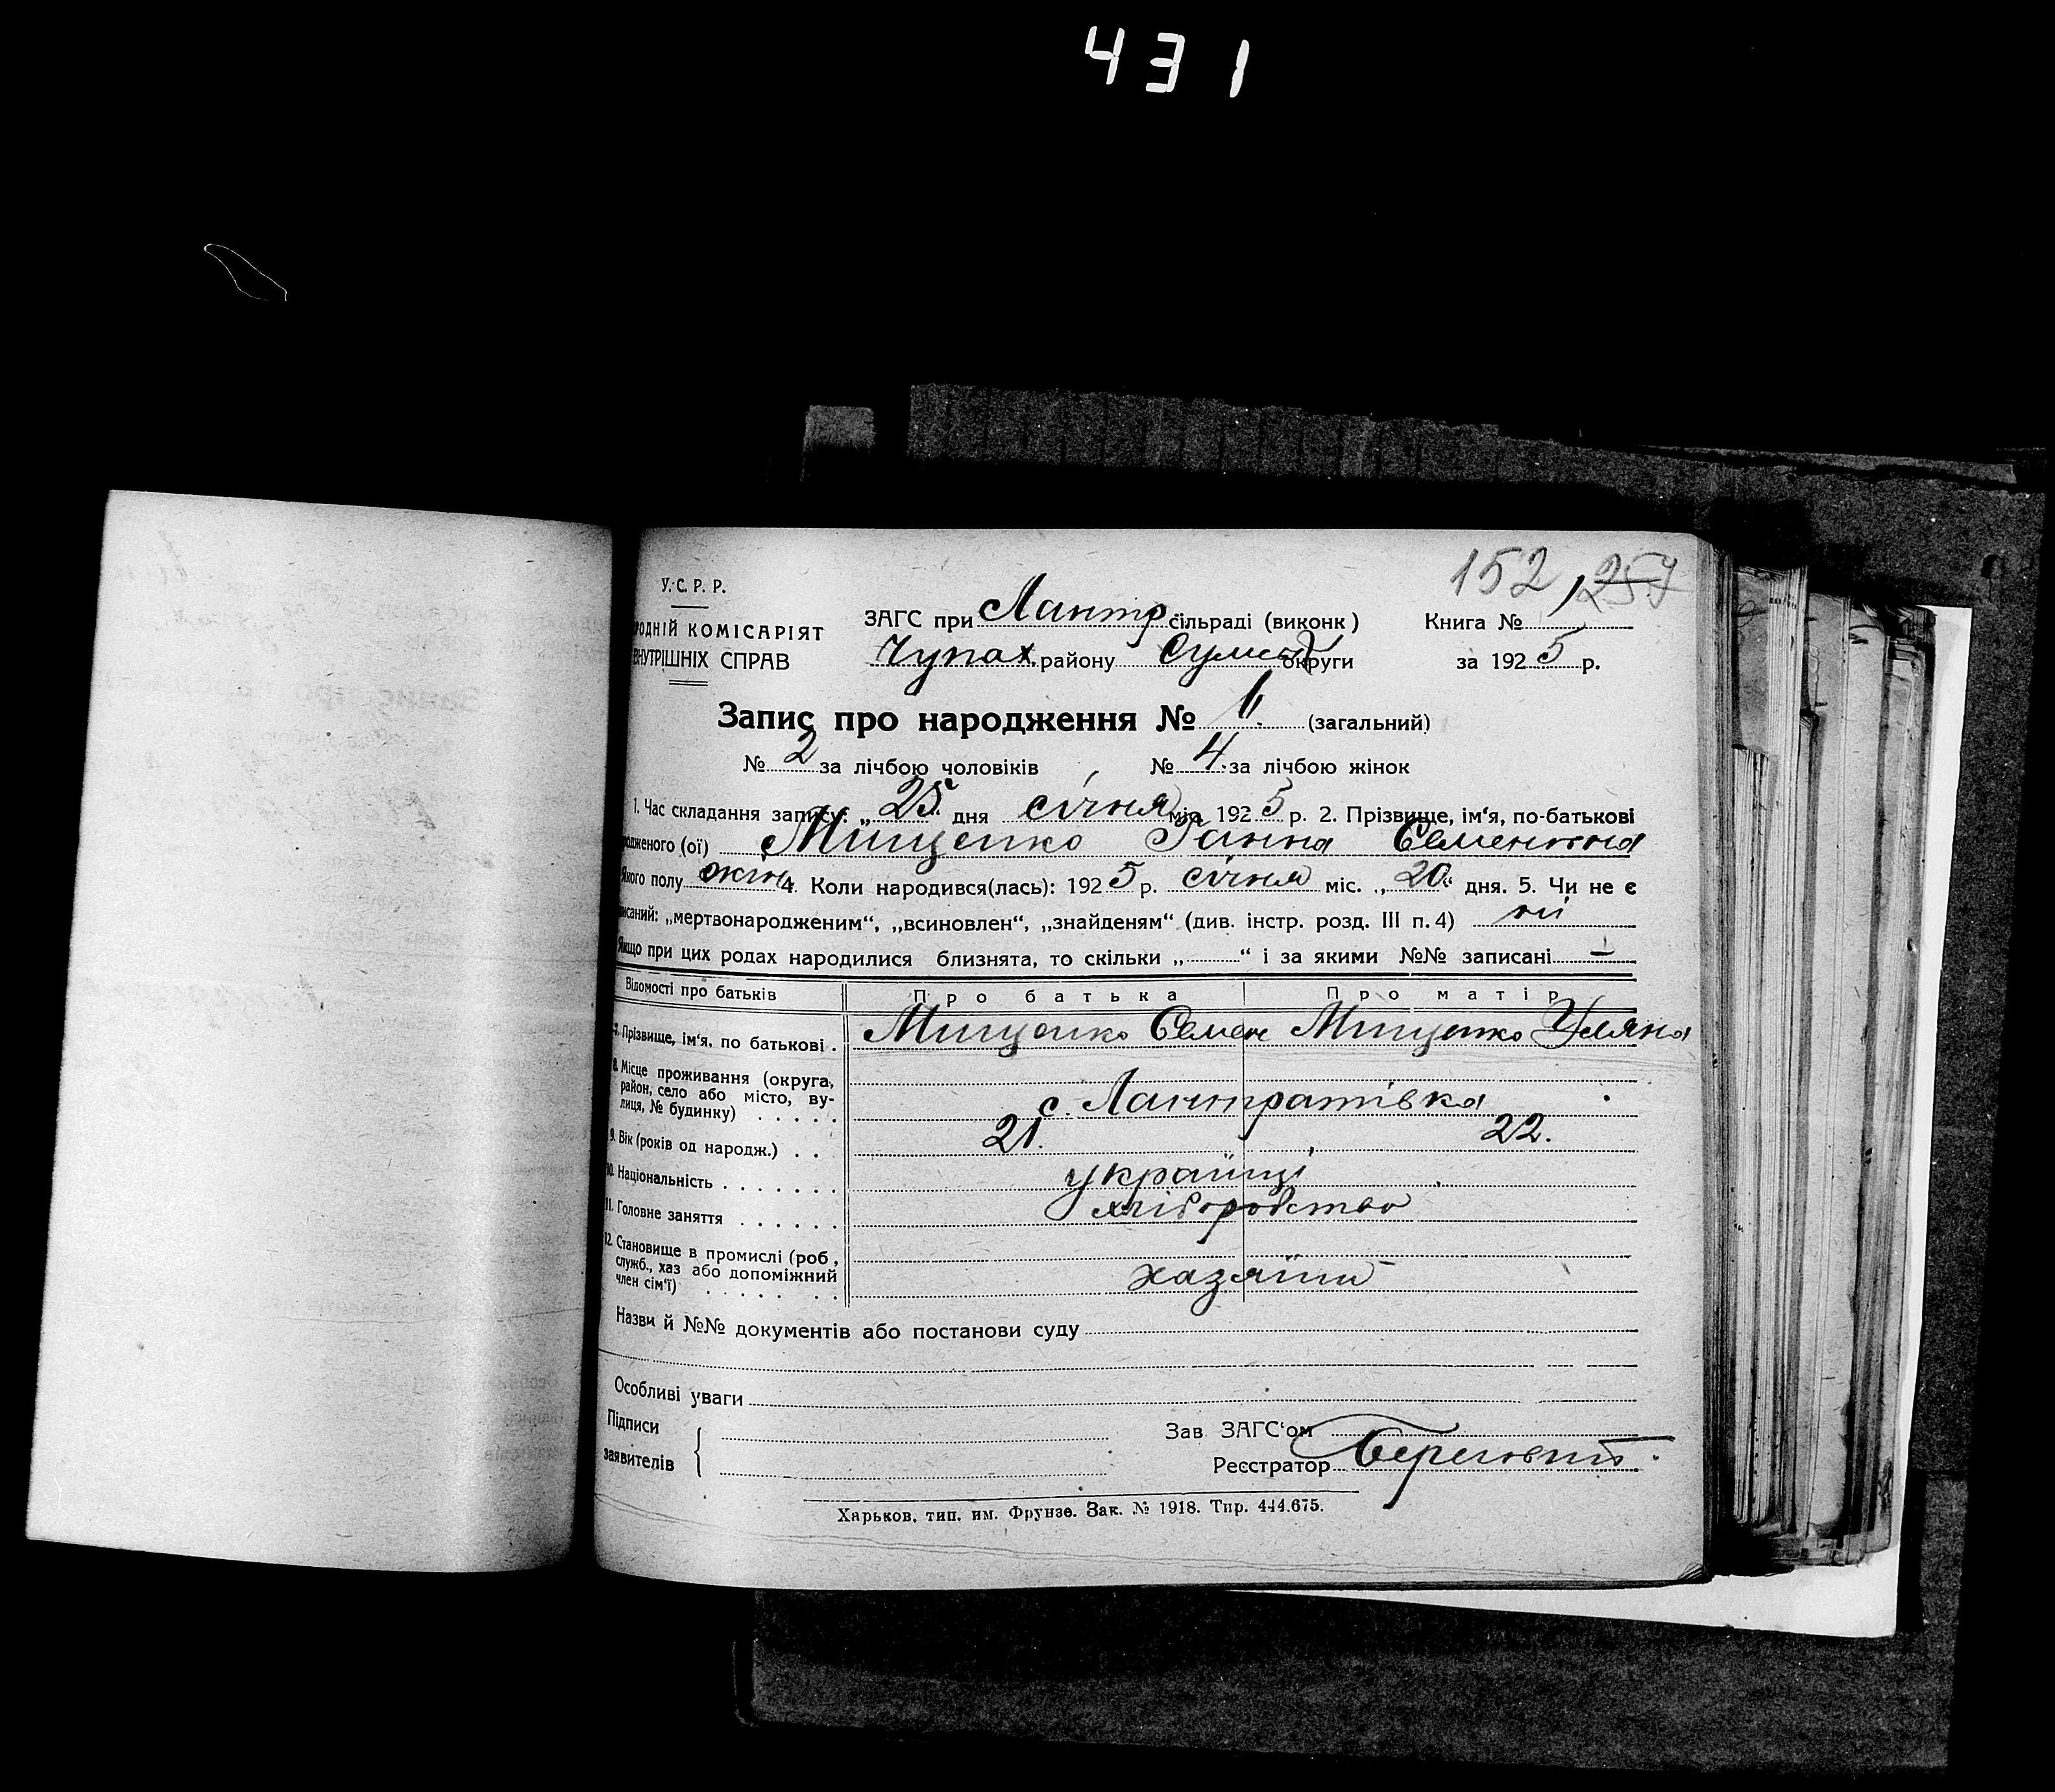 431
152 257
У.С.Р.Р.
РОДНІЙ КОМІСАРІЯТ
ВНУТРІШНІХ СПРАВ
ЗАГС при Лантр. сільраді (виконк) Книга № 1
Чупах. району Сумськ округи за 1925 р.
Запис про народження № (загальний)
№ 2 за лічбою чоловіків № 4. за лічбою жінок
1. Час складання запису: „25“ дня січня міс. 1925 р. 2. Прізвище, ім‘я, по-батькові
одженого (ої) Мищенко Ганна Семеновна
якого полу жін. 4. Коли народився(лась): 1925 р. січня міс. „20“ дня. 5. Чи не є
писаний: „мертвонародженим“, „всиновлен“, „знайденям“ (див. інстр. розд. III п. 4) ні
Якщо при цих родах народилися близнята, то скільки „ “ і за якими №№ записані -
Відомості про батьків Про батька Про матір
7. Прізвище, ім‘я, по батькові . Мищенко Семен Мищенко Уляна
8. Місце проживання (округа,
район, село або місто, ву-
лиця, № будинку) . . . . . с. Лантратівка
9. Вік (років од народж.) . . . 21. 22.
10. Національність . . . . . . . українці
11. Головне заняття . . . . . . хліборобство
12. Становище в промислі (роб.,
служб., хаз або допоміжний
член сім‘ї) . . . . . . . хазяїни
Назви й №№ документів або постанови суду
Особливі уваги
Підписи
заявителів
Зав ЗАГС‘ом
Реєстратор
Харьков, тип. им. Фрунзе. Зак. № 1918. Тир. 444.675.